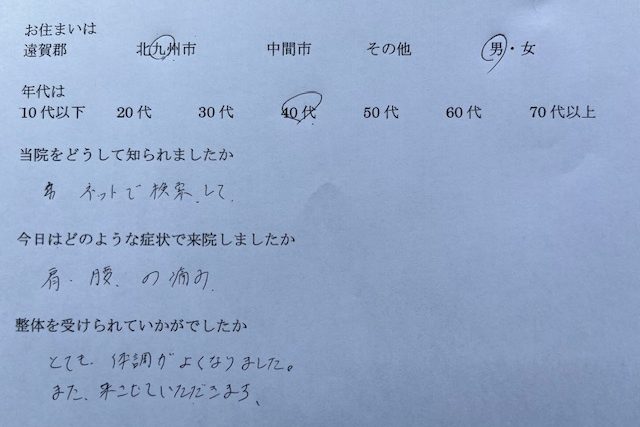 お住まいは
遠賀郡 北九州市 中間市 その他 男・女
年代は
10代以下 20代 30代 40代 50代 60代 70代以上
当院をどうして知られましたか
ネットで検索して
今日はどのような症状で来院しましたか
肩、腰、の痛み
整体を受けられていかがでしたか
とても体調がよくなりました。
また、来させていただきます、